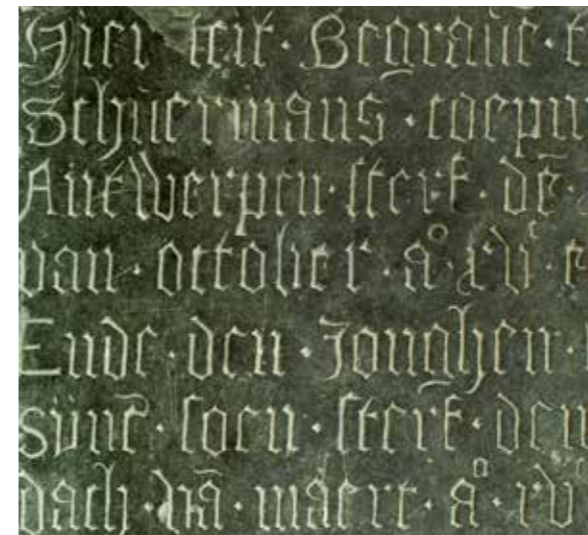 Hier leit · Begrauē ·
Schuermans · coepm
Antwerpen · sterf · dē ·
van · october · a° xvi c
Ende · den · Jonghen ·
synē · soen · sterf · den
dach · vā · maert · a° · xv